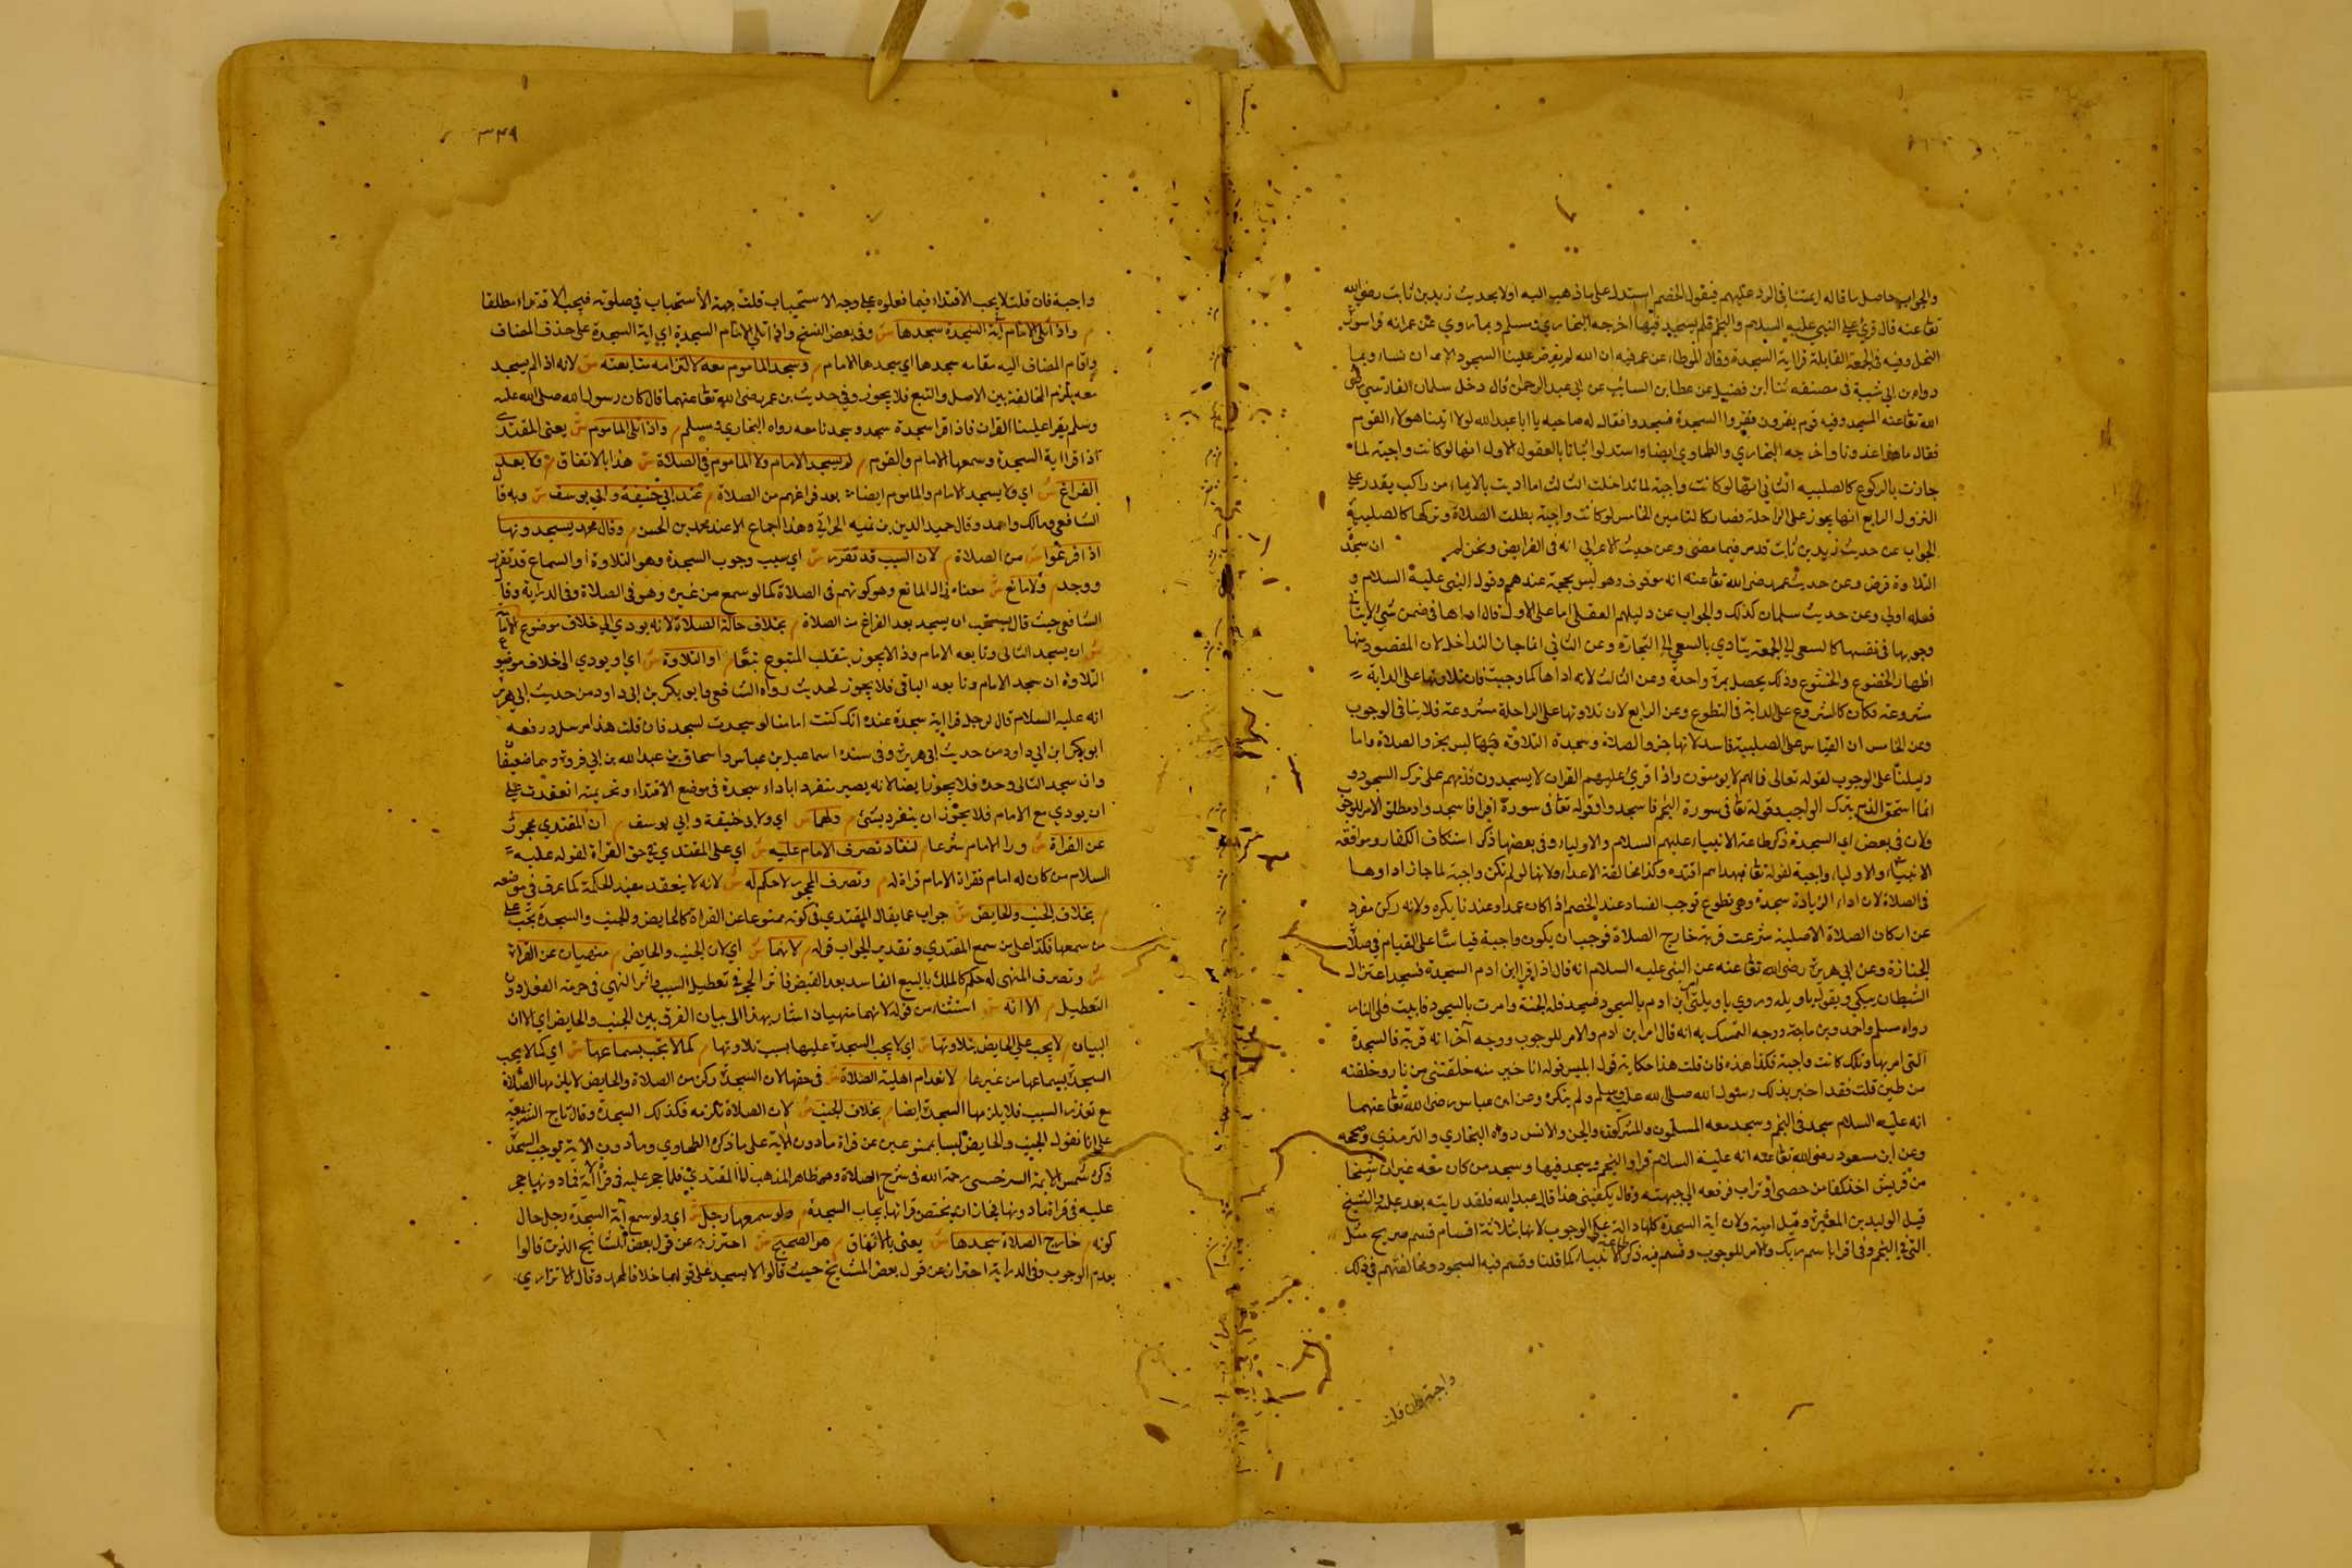 والجواب حاصل ما قاله ايمتنا في الرد عليهم فيقول الخصم استدل على ما ذهب اليه اولا بحديث زيد بن ثابت رضي الله
تعا عنه قال قرئ على النبي عليه السلام والنجم فلم يسجد فيها اخرجه البخاري ومسلم وبما روي عن عمر انه قرا سورة
النحل وفيه في الجمعة القابلة قراية السجدة وقال الموطاء عن عمر فيه ان الله لم يفرض علينا السجود الا ان نشاء وبما
رواه بن ابي شيبة في مصنفه ثنا ابن فضيل عن عطا بن السائب عن ابي عبد الرحمن قال دخل سلمان الفارسي رضي
الله تعا عنه المسجد وفيه قوم يقرون فقروا السجدة فسجدوا فقال له صاحبه يا ابا عبد الله لولا اتينا هولاء القوم
فقال ما لهذا غدونا واخرجه البخاري والطحاوي ايضا واستدلوا ثانيا بالعقول الاول انها لو كانت واجبة لما
جازت بالركوع كالصلبيه الثاني انها لو كانت واجبة لما تداخلت الثالث لما اديت بالايماء من راكب يقدر على
النزول الرابع انها يجوز على الراحلة فصار كالتامين الخامس لو كانت واجبة بطلت الصلاة وتركها كالصلبية
الجواب عن حديث زيد بن ثابت قد مر فيما مضى وعن حديث الاعرابي انه في الفرايض ونحن لم ان سجدة
التلاوة فرض وعن حديث عمر رضي الله تعا عنه انه موقوف وهو ليس بحجة عندهم وقول النبي عليه السلام و
فعله اولى وعن حديث سلمان كذلك والجواب عن دليلهم العقلى اما على الاول فان اداها في ضمن شئ لا ينافي
وجوبها في نفسها كالسعى الى الجمعة يتادي بالسعي الى التجارة وعن الثاني انما جاز التداخل لان المقصود منها
اظهار الخضوع والخشوع وذلك يحصل بمرة واحدة وعن الثالث لانه اداها كما وجبت فان تلاوتها على الدابة
مشروعة فكان كالشروع على الدابة في التطوع وعن الرابع لان تلاوتها على الراحلة مشروعة فلا ينافي الوجوب
وعن الخامس ان القياس على الصلبية فاسد لانها جزو الصلاة وسجدة التلاوة ليس بجزو الصلاة واما
دليلنا على الوجوب لقوله تعالى فما لهم لا يومنون واذا قرئ عليهم القران لا يسجدون فذمهم على ترك السجود و
انما استحق الذم بترك الواجب وقوله تعا في سورة النجم فاسجدوا وقوله تعا في سورة اقرا فاسجد واد ومطلق الامر للوجوب
ولان في بعض اي السجدة ذكر طاعة الانبياء عليهم السلام والاولياء وفي بعضها ذكر استنكاف الكفار وموافقة
الانبياء والاولياء واجبة لقوله تعا فبهداهم اقتده وكذا مخالفة الاعداء ولانها لو لم تكن واجبة لما جاز اداوها
في الصلاة لان اداء الزيادة سجدة وهي تطوع توجب الفساد عند الخصم اذا كان عمدا وعندنا يكره ولانه ركن مفرد
عن اركان الصلاة الاصلية شرعت قربة خارج الصلاة فوجب ان يكون واجبة قياسا على القيام في صلاة
الجنازة وعن ابي هريرة رضي الله تعا عنه عن النبي عليه السلام انه قال اذا قرا ابن ادم السجدة فسجد اعتزل
الشيطان يبكي ويقول يا ويله وروي يا ويلتى امر ابن ادم بالسجود فسجد فله الجنة وامرت بالسجود فابيت فلي النار
رواه مسلم واحمد وبن ماجة ووجه التمسك به انه قال امر ابن ادم والامر للوجوب ووجه آخر انه قرنه فالسجدة
التى امر بها وتلك كانت واجبة فكذا هذه فان قلت هذا حكاية قول ابليس قوله انا خير منه خلقتنى من نار وخلقته
من طين قلت فقد اخبر بذلك رسول الله صلى الله عليه وسلم ولم ينكره وعن ابن عباس رضي الله تعا عنهما
انه عليه السلام سجد في النجم وسجد معه المسلمون والمشركون والجن والانس رواه البخاري والترمذي وصححه
وعن ابن مسعود رضي الله تعا عنه انه عليه السلام قرا والنجم وسجد فيها وسجد من كان معه غير ان شيخا
من قريش اخذ كفا من حصى او تراب فرفعه الى جبهته وقال يكفيني هذا قال عبد الله فلقد رايته بعد والشيخ
قيل الوليد بن المغيرة وقيل امية ولان اية السجدة كلها دالة على الوجوب لانها ثلاثة اقسام قسم صريح مثل
التى في النجم وفى اقرا باسم ربك والامر للوجوب وقسم فيه ذكر طاعة الانبياء كما قلنا وقسم فيه السجود ومخالفتهم في ذلك
واجبة فان قلت
٣٤٩
واجبة فان قلت لا يجب الاقتداء فيما فعلوه على وجه الاستحباب قلت جهة الاستحباب في صلوته فيجب الاقتداء مطلقا
م واذا تلى الامام آية السجدة سجدها ش وفى بعض النسخ واذا تلى الامام السجدة اي اية السجدة على حذف المضاف
واقام المضاف اليه مقامه سجدها اي سجدها الامام م وسجد الماموم معه لالتزامه متابعته ش لانه اذا لم يسجد
معه يلزم المخالفة بين الاصل والتبع فلا يجوز وفي حديث بن عمر رضي الله تعا عنهما قال كان رسول الله صلى الله عليه
وسلم يقرا علينا القران فاذا قرا سجدة سجد وسجدنا معه رواه البخاري ومسلم م واذا تلى الماموم ش يعنى المقتدى
اذا قرا اية السجدة وسمعها الامام والقوم م لم يسجد الامام ولا الماموم في الصلاة ش هذا بالاتفاق م ولا بعد
الفراغ ش اي ولا يسجد الامام والماموم ايضا بعد فراغهم من الصلاة م عند ابي حنيفة وابي يوسف ش وبه قا
الشافعي ومالك واحمد وقال حميد الدين بن تميه الحراني وهذا اجماع الا عند محمد بن الحسن م وقال محمد يسجدونها
اذا فرغوا ش من الصلاة م لان السبب قد تقرر ش اي سبب وجوب السجدة وهو التلاوة او السماع قد تقرر
ووجد م ولا مانع ش معناه زال المانع وهو كونهم في الصلاة كما لو سمع من غيره وهو في الصلاة وفى الدراية وقا
الشافعي حيث قال يستحب ان يسجد بعد الفراغ من الصلاة م بخلاف حالة الصلاة لانه يودي الى خلاف موضوع الامامة
ش ان يسجد التالى وتابعه الامام وذا لا يجوز بتقلب المتبوع تبعا م او التلاوة ش اي او يودي الى خلاف موضوع
التلاوة ان سجد الامام وتابعه الباقي فلا يجوز لحديث رواه الشافعي وابو بكر بن ابى داود من حديث ابي هريرة
انه عليه السلام قال لرجل قرا اية سجدة عنده انك كنت امامنا لو سجدت لسجد فان قلت هذا مرسل ورفعه
ابو بكر ابن ابي داود من حديث ابى هريرة وفى سنده اسماعيل بن عياش واسحاق بن عبد الله بن ابي فروة وهما ضعيفا
وان سجد التالى وحده فلا يجوز ايضا لانه يصير منفردا باداء سجدة في موضع الاقتداء وتحريمته انعقدت على
ان يودي مع الامام فلا يجوز ان ينفرد بشئ م ولهما ش اي ولابى حنيفة وابي يوسف م ان المقتدي محجور
عن القراة ش ورا الامام شرعا م لنفاذ تصرف الامام عليه ش اي على المقتدي في حق القراة لقوله عليه
السلام من كان له امام فقراة الامام قراة له م وتصرف المحجور لا حكم له ش لانه لا ينعقد مفيد الحكمه كما عرف في موضعه
م بخلاف الجنب والحايض ش جواب عما يقال المقتدي في كونه ممنوعا عن القراة كالحايض والجنب والسجدة تجب على
من سمعها فكذا على من سمع المقتدي وتقدير الجواب قوله م لانهما ش اي لان الجنب والحايض م منهيان عن القراة
ش وتصرف المنهى له حكم كالملك بالبيع الفاسد بعد القبض فاثر الحجر في تعطيل السبب واثر النهي في حرمة الفعل دون
التعطيل م الا انه ش استثناء من قوله لانهما منهيان اشار بهذا الى بيان الفرق بين الجنب والحايض اي الا ان
البيان م لا يجب على الحايض بتلاوتها ش اي لا يجب السجدة عليها بسبب تلاوتها م كما لا يجب بسماعها ش اي كما لا يجب
السجدة بسماعها من غيرها م لانعدام اهلية الصلاة ش في حقها لان السجدة ركن من الصلاة والحايض لا يلزمها الصلاة
مع تعذر السبب فلا يلزمها السجدة ايضا م بخلاف الجنب ش لان الصلاة تلزمه فكذلك السجدة وقال تاج الشريعة
على انا نقول الجنب والحايض ليسا بممنوعين عن قراة ما دون الاية على ما ذكره الطحاوي وما دون الاية يوجب السجدة
ذكره شمس الايمة السرخسى رحمة الله في شرح الصلاة وهو ظاهر المذهب لنا المقتدي فلما حجر عليه في قراة آية فما دونها حجر
عليه في قراة ما دونها فجاز ان يختص قراتها بايجاب السجدة م ولو سمعها رجل ش اي ولو سمع آية السجدة رجل حال
كونه م خارج الصلاة سجدها ش يعنى بالاتفاق م هو الصحيح ش احترز به عن قول بعض المشايخ الذين قالوا
بعدم الوجوب وفى الدراية احتراز عن قول بعض المشايخ حيث قالوا لا يسجد على قولهما خلافا لمحمد وقال الاترازي